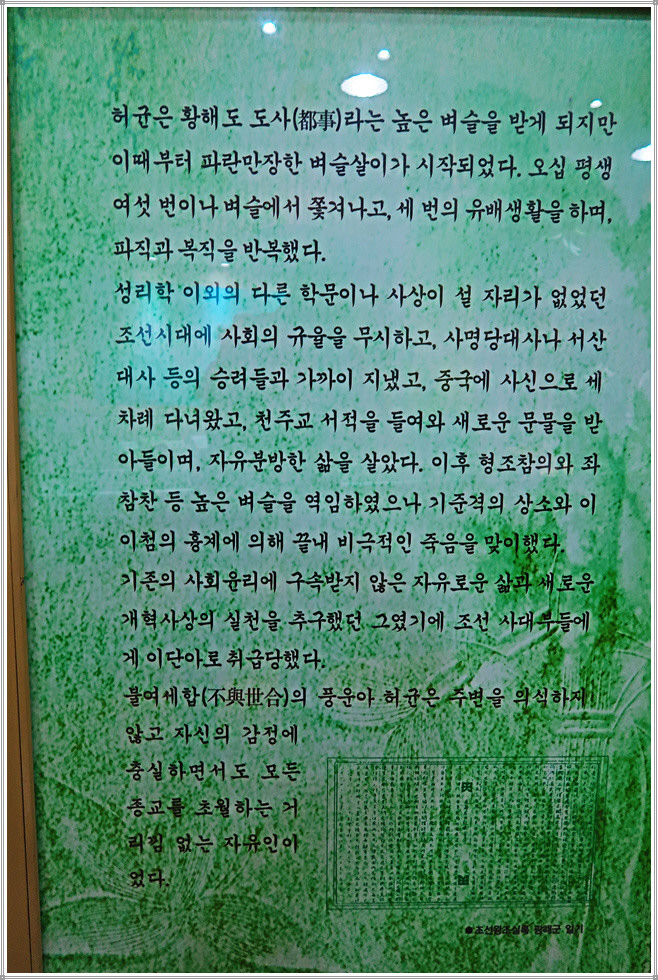 허균은 황해도 도사(都事)라는 높은 벼슬을 받게 되지만
이때부터 파란만장한 벼슬살이가 시작되었다. 오십 평생
여섯 번이나 벼슬에서 쫓겨나고, 세 번의 유배생활을 하며,
파직과 복직을 반복했다.
성리학 이외의 다른 학문이나 사상이 설 자리가 없었던
조선시대에 사회의 규율을 무시하고, 사명당대사나 서산
대사 등의 승려들과 가까이 지냈고, 중국에 사신으로 세
차례 다녀왔고, 천주교 서적을 들여와 새로운 문물을 받
아들이며, 자유분방한 삶을 살았다. 이후 형조참의와 좌
참찬 등 높은 벼슬을 역임하였으나 기준격의 상소와 이
이첨의 흉계에 의해 끝내 비극적인 죽음을 맞이했다.
기존의 사회윤리에 구속받지 않은 자유로운 삶과 새로운
개혁사상의 실천을 추구했던 그였기에 조선 사대부들에
게 이단아로 취급당했다.
불여세합(不與世合)의 풍운아 허균은 주변을 의식하지
않고 자신의 감정에
충실하면서도 모든
종교를 초월하는 거
리낌 없는 자유인이
었다.
●조선왕조실록 광해군 일기